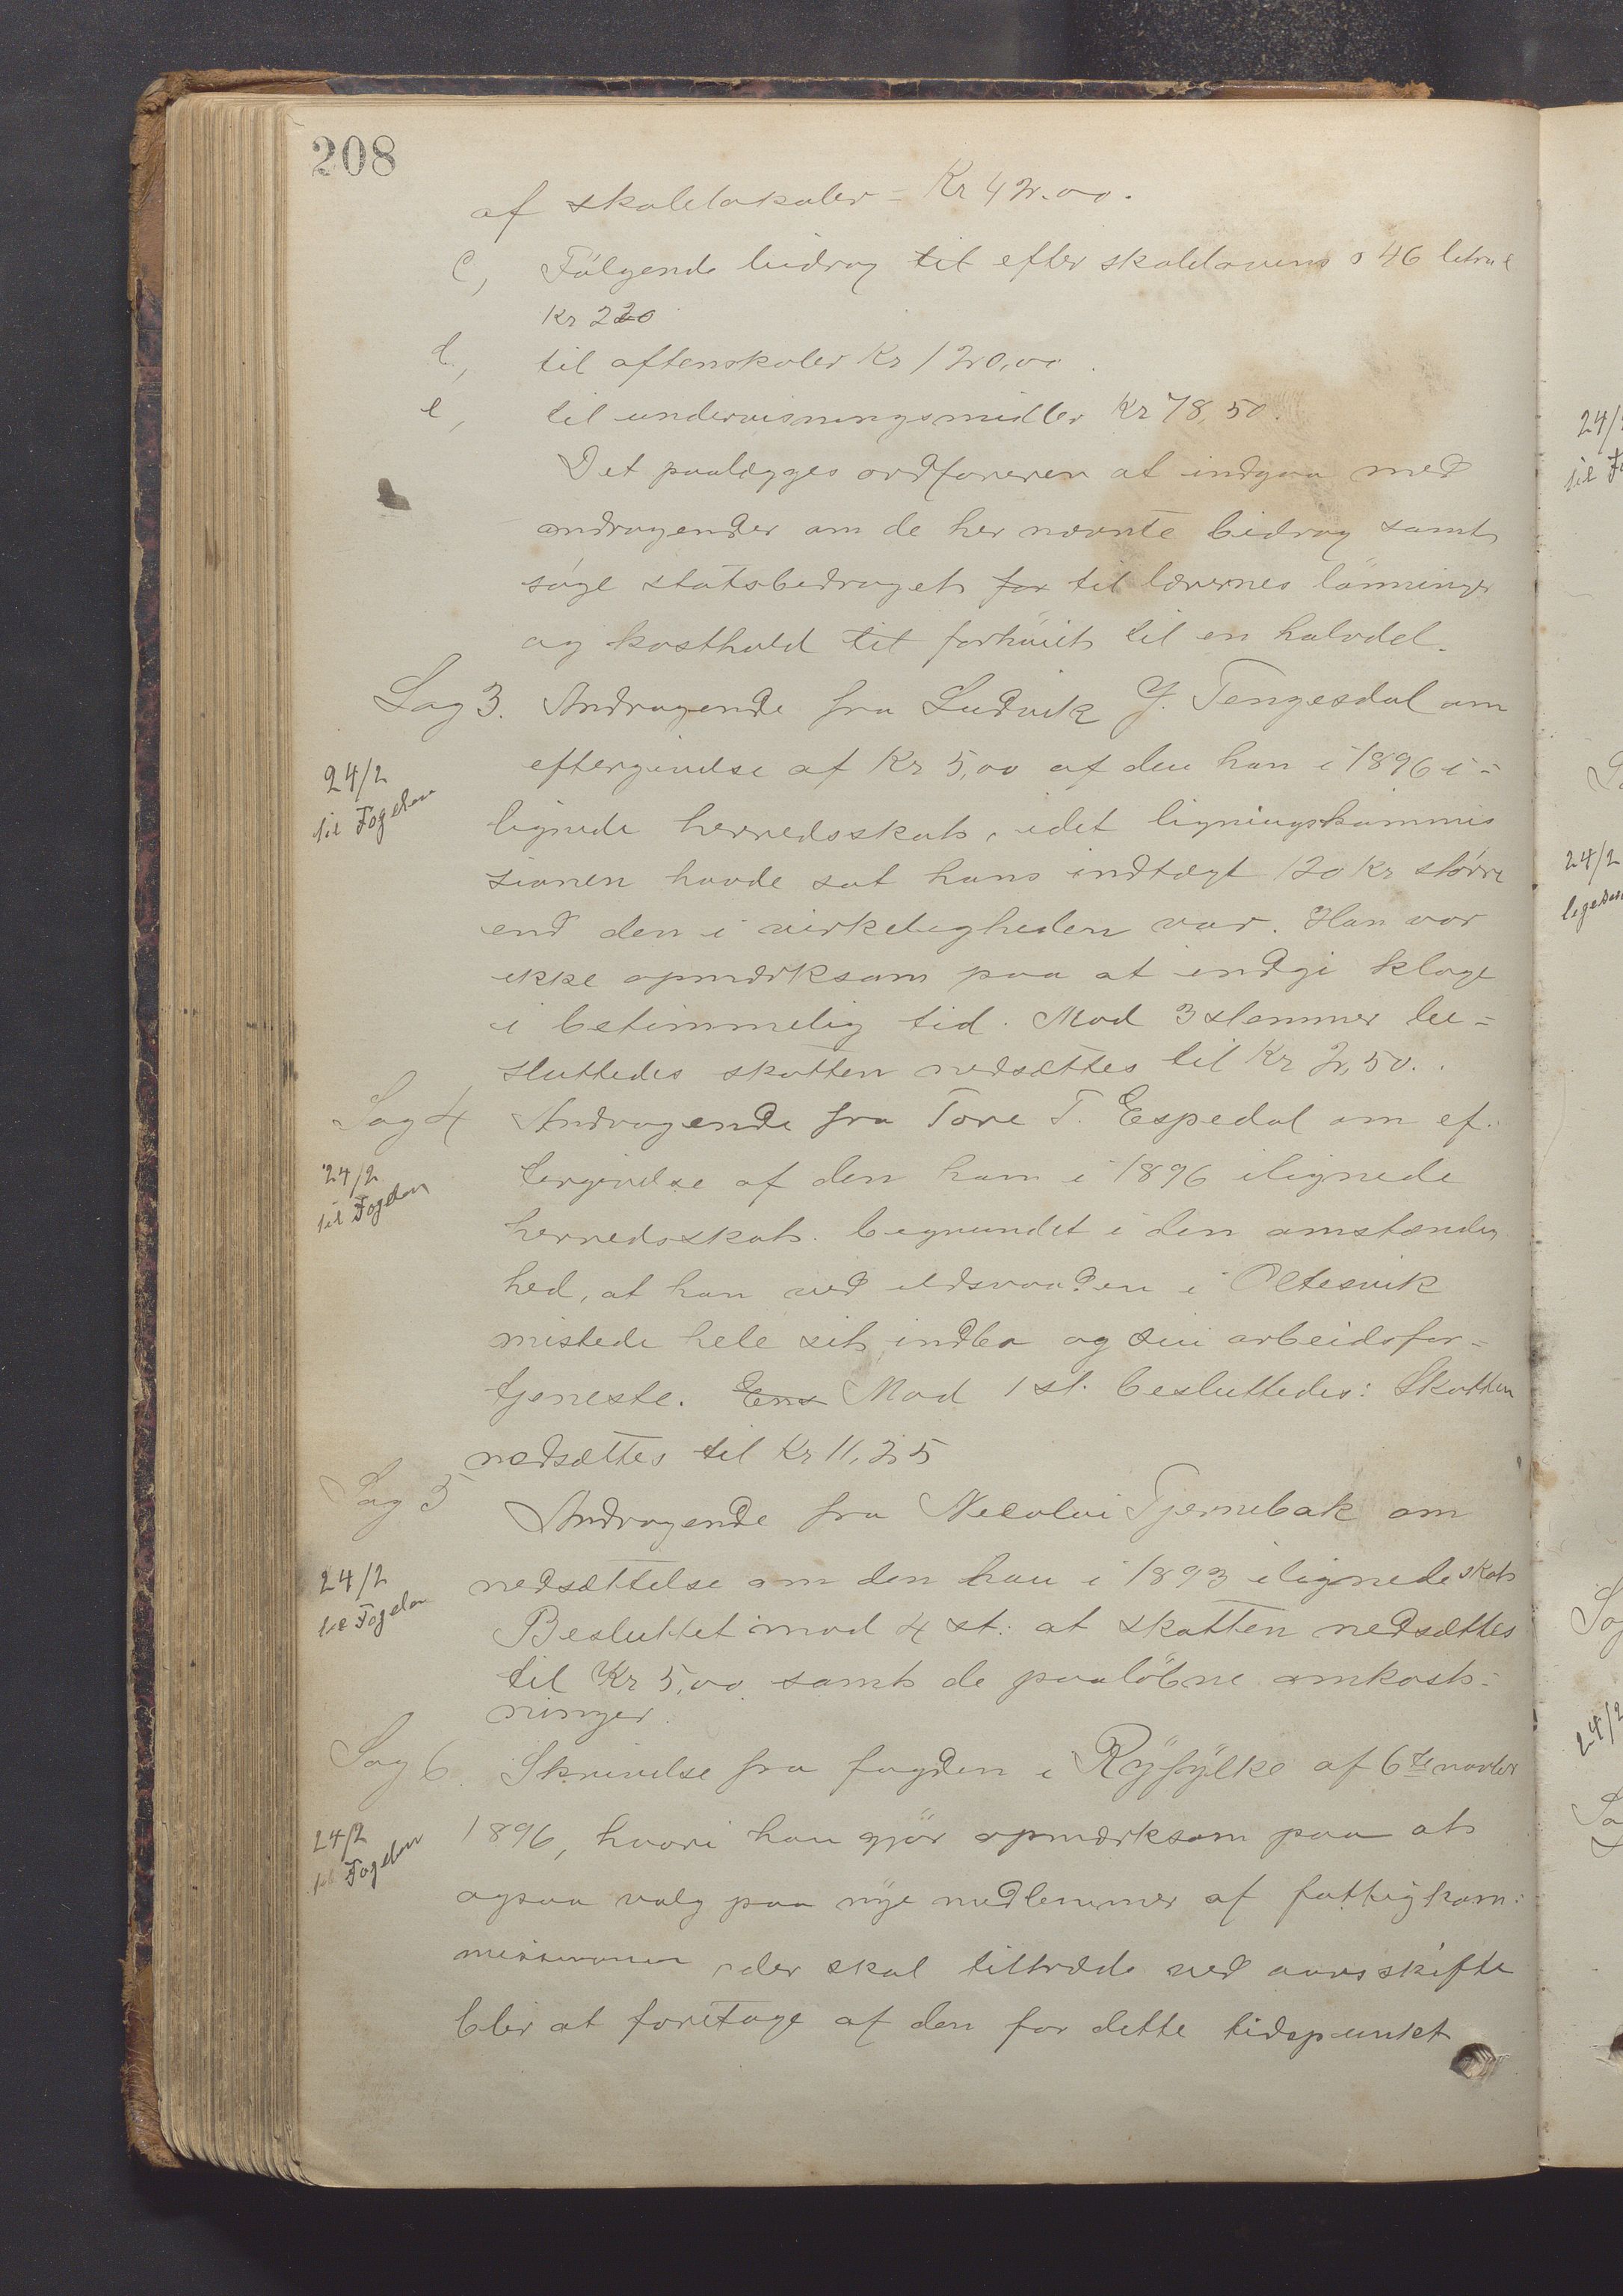 208
af skolelokaler = Kr 42.00.
c, Følgende bidrag til efter skolelovens § 46 litra e
Kr 220
d, til aftenskoler Kr 120,00.
e, til undervisningsmidler Kr 78,50.
Det paalægges ordføreren at indgaa med
andragender om de her nævnte bidrag samt
søge statsbedraget for til lærernes lønninger
og kosthold til forhøiet til en halvdel.
Sag 3. Andragende fra Ludvik J. Tengesdal om
eftergivelse af Kr 5,00 af den han i 1896 i=
24/2
til Fogden
lignede herredsskat, idet ligningskommis
sionen havde sat hans indtægt 120 Kr større
end den i virkeligheden var. Han var
ikke opmærksom paa at indgi klage
i betimmelig tid. Mod 3 stemmer be=
sluttedes skatten nedsættes til Kr 2,50.
Sag 4, Andragende fra Tore T. Espedal om ef.
24/2
til Fogden
tergivelse af den ham i 1896 ilignede
herredsskat. begrundet i den omstændig
hed, at han ved ildsvaaden i Oltesvik
mistede hele sit indbo og sin arbeidsfor=
tjeneste. Ens Mod 1 st. besluttedes: Skatten
nedsættes til Kr 11,25
Sag 5 Andragende fra Nicolai Tjernebak om
24/2
til Fogden
nedsættelse om den han i 1893 ilignede skat
Besluttet mod 4 st: at skatten nedsættes
til Kr 5,00 samt de paaløbne omkost=
ninger.
Sag 6. Skrivelse fra fogden i Ryfylke af 6te novbr
24/2
til Fogden
1896, hvori han gjør opmærksom paa at
ogsaa valg paa nye medlemmer af fattigkom=
missionen, der skal tiltræde ved aarsskifte
blir at foretage af den for dette tidspunkt
24/2